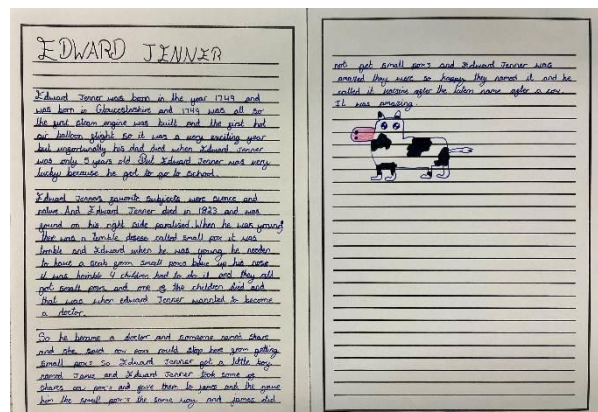 EDWARD JENNER
Edward Jenner was born in the year 1749 and
was born in Gloucestershire and 1749 was all so
the year steam engine was built and the first hot
air balloon flight so it was a very exciting year
but unfortunally his dad died when Edward Jenner
was only 5 years old. But Edward Jenner was very
lucky because he got to go to school.
Edward Jenners favorite subjects were science and
nature. And Edward Jenner died in 1823 and was
found on his right side paralised. When he was young
ther was a terrible desese called small pox it was
terrible and Edward when he was young he needen
to have a scab from small poxs up his nose
it was horrible 4 children had to do it and they all
got small poxs and one of the children died and
that was when edward Jenner wannted to become
a doctor.
So he became a doctor and someone named
and she said cow poxs could stop here from geting
small poxs so Edward Jenner got a little boy
named James and Edward Jenner took some of
cow poxs and gave them to james and the gave
him the small poxs the same way and james did
not get small poxs and Edward Jenner was
amazed they were so happy they named it and he
called it vaccine after the latein name after a cow.
It was amazing.